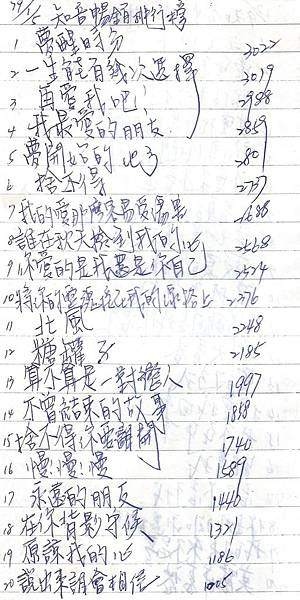 79/1/5 知音暢銷排行榜
1 夢醒時分 3022
2 一生能有幾次選擇 3019
3 再愛我吧! 2958
4 我最愛的朋友 2859
5 夢開始的地方 2801
6 捨不得 2737
7 我的愛那麼容易受傷害 2688
8 誰在秋天撿到我的心 2568
9 你愛的是我還是你自己 2514
10 將你的靈魂接在我的線路上 2376
11 北風 2248
12 糖罐子 2185
13 算不算是一對戀人 1997
14 不會結束的故事 1858
15 捨不得你要離開 1740
16 慢!慢!慢 1589
17 永遠的朋友 1446
18 在你背影守候 1321
19 原諒我的心 1186
20 說出來就會相信 1005